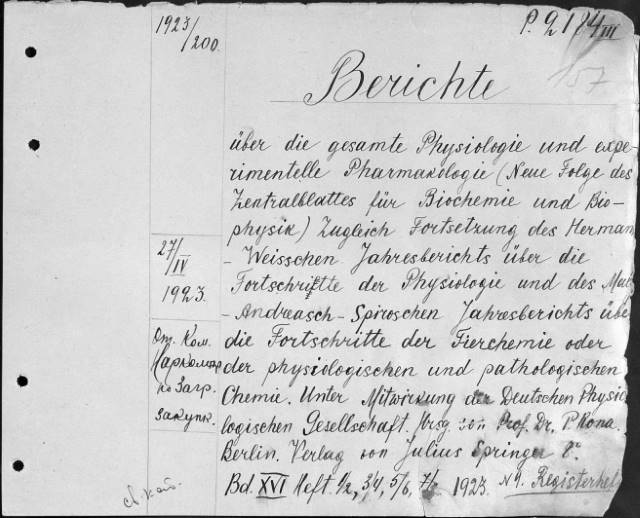 1923/200
P. 2184 III
157
Berichte
über die gesamte Physiologie und expe-
rimentelle Pharmakologie (Neue Folge des
Zentralblattes für Biochemie und Bio-
physik) Zugleich Fortsetzung des Herman
- Weisschen Jahresberichts über die
Fortschritte der Physiologie und des
- Andreasch - Spiroschen Jahresberichts übe
die Fortschritte der Tierchemie oder
der physiologischen und pathologischen
Chemie. Unter Mitwirkung der Deutschen Physio
logischen Gesellschaft. Hrsg. von Prof. Dr. P. Rona.
Berlin. Verlag von Julius Springer
Bd. XVI Heft. 1/2, 3/4, 5/6, 7/8 1923. Registerheft
27/IV
1923.
От. Ком.
по Загр.
закупк.